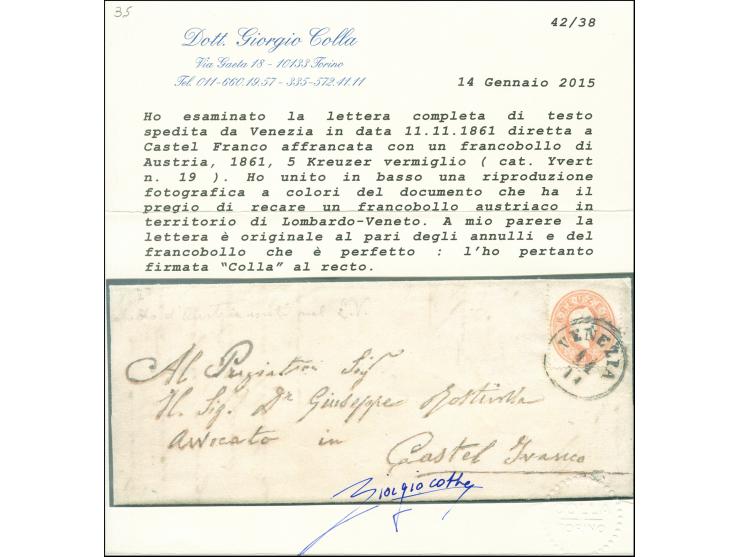 35
42/38
Dott. Giorgio Colla
Via Gaeta 18 - 10133 Torino
Tel. 011-660.19.57 - 335-572.41.11
14 Gennaio 2015
Ho esaminato la lettera completa di testo
spedita da Venezia in data 11.11.1861 diretta a
Castel Franco affrancata con un francobollo di
Austria, 1861, 5 Kreuzer vermiglio ( cat. Yvert
n. 19 ). Ho unito in basso una riproduzione
fotografica a colori del documento che ha il
pregio di recare un francobollo austriaco in
territorio di Lombardo-Veneto. A mio parere la
lettera è originale al pari degli annulli e del
francobollo che è perfetto : l'ho pertanto
firmata "Colla" al recto.
KREUZER
VENEZIA
11
11
Al
Il Sig. Dr Giuseppe
Avvocato in
Castel Franco
Giorgio Colla
COLLA
TORINO